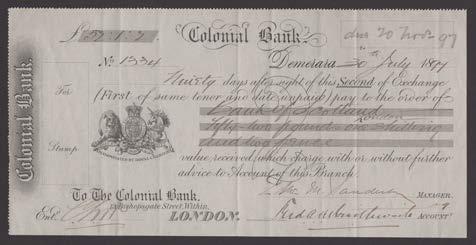 £52.1.2 Colonial Bank. due 20 Nov 97
No 1334 Demerara 20th July 1897
Ninety days after sight of this Second of Exchange
For (First of same tenor and date unpaid) pay to the order of
Bank of Scotland London
fifty two pounds one shilling
and two pence
Stamp. value received which charge with or without further
advice to Account of this Branch.
To The Colonial Bank.
MANAGER.
13, Bishopsgate Street, Within,
LONDON.
Entd.
ACCOUNT.
Colonial Bank.